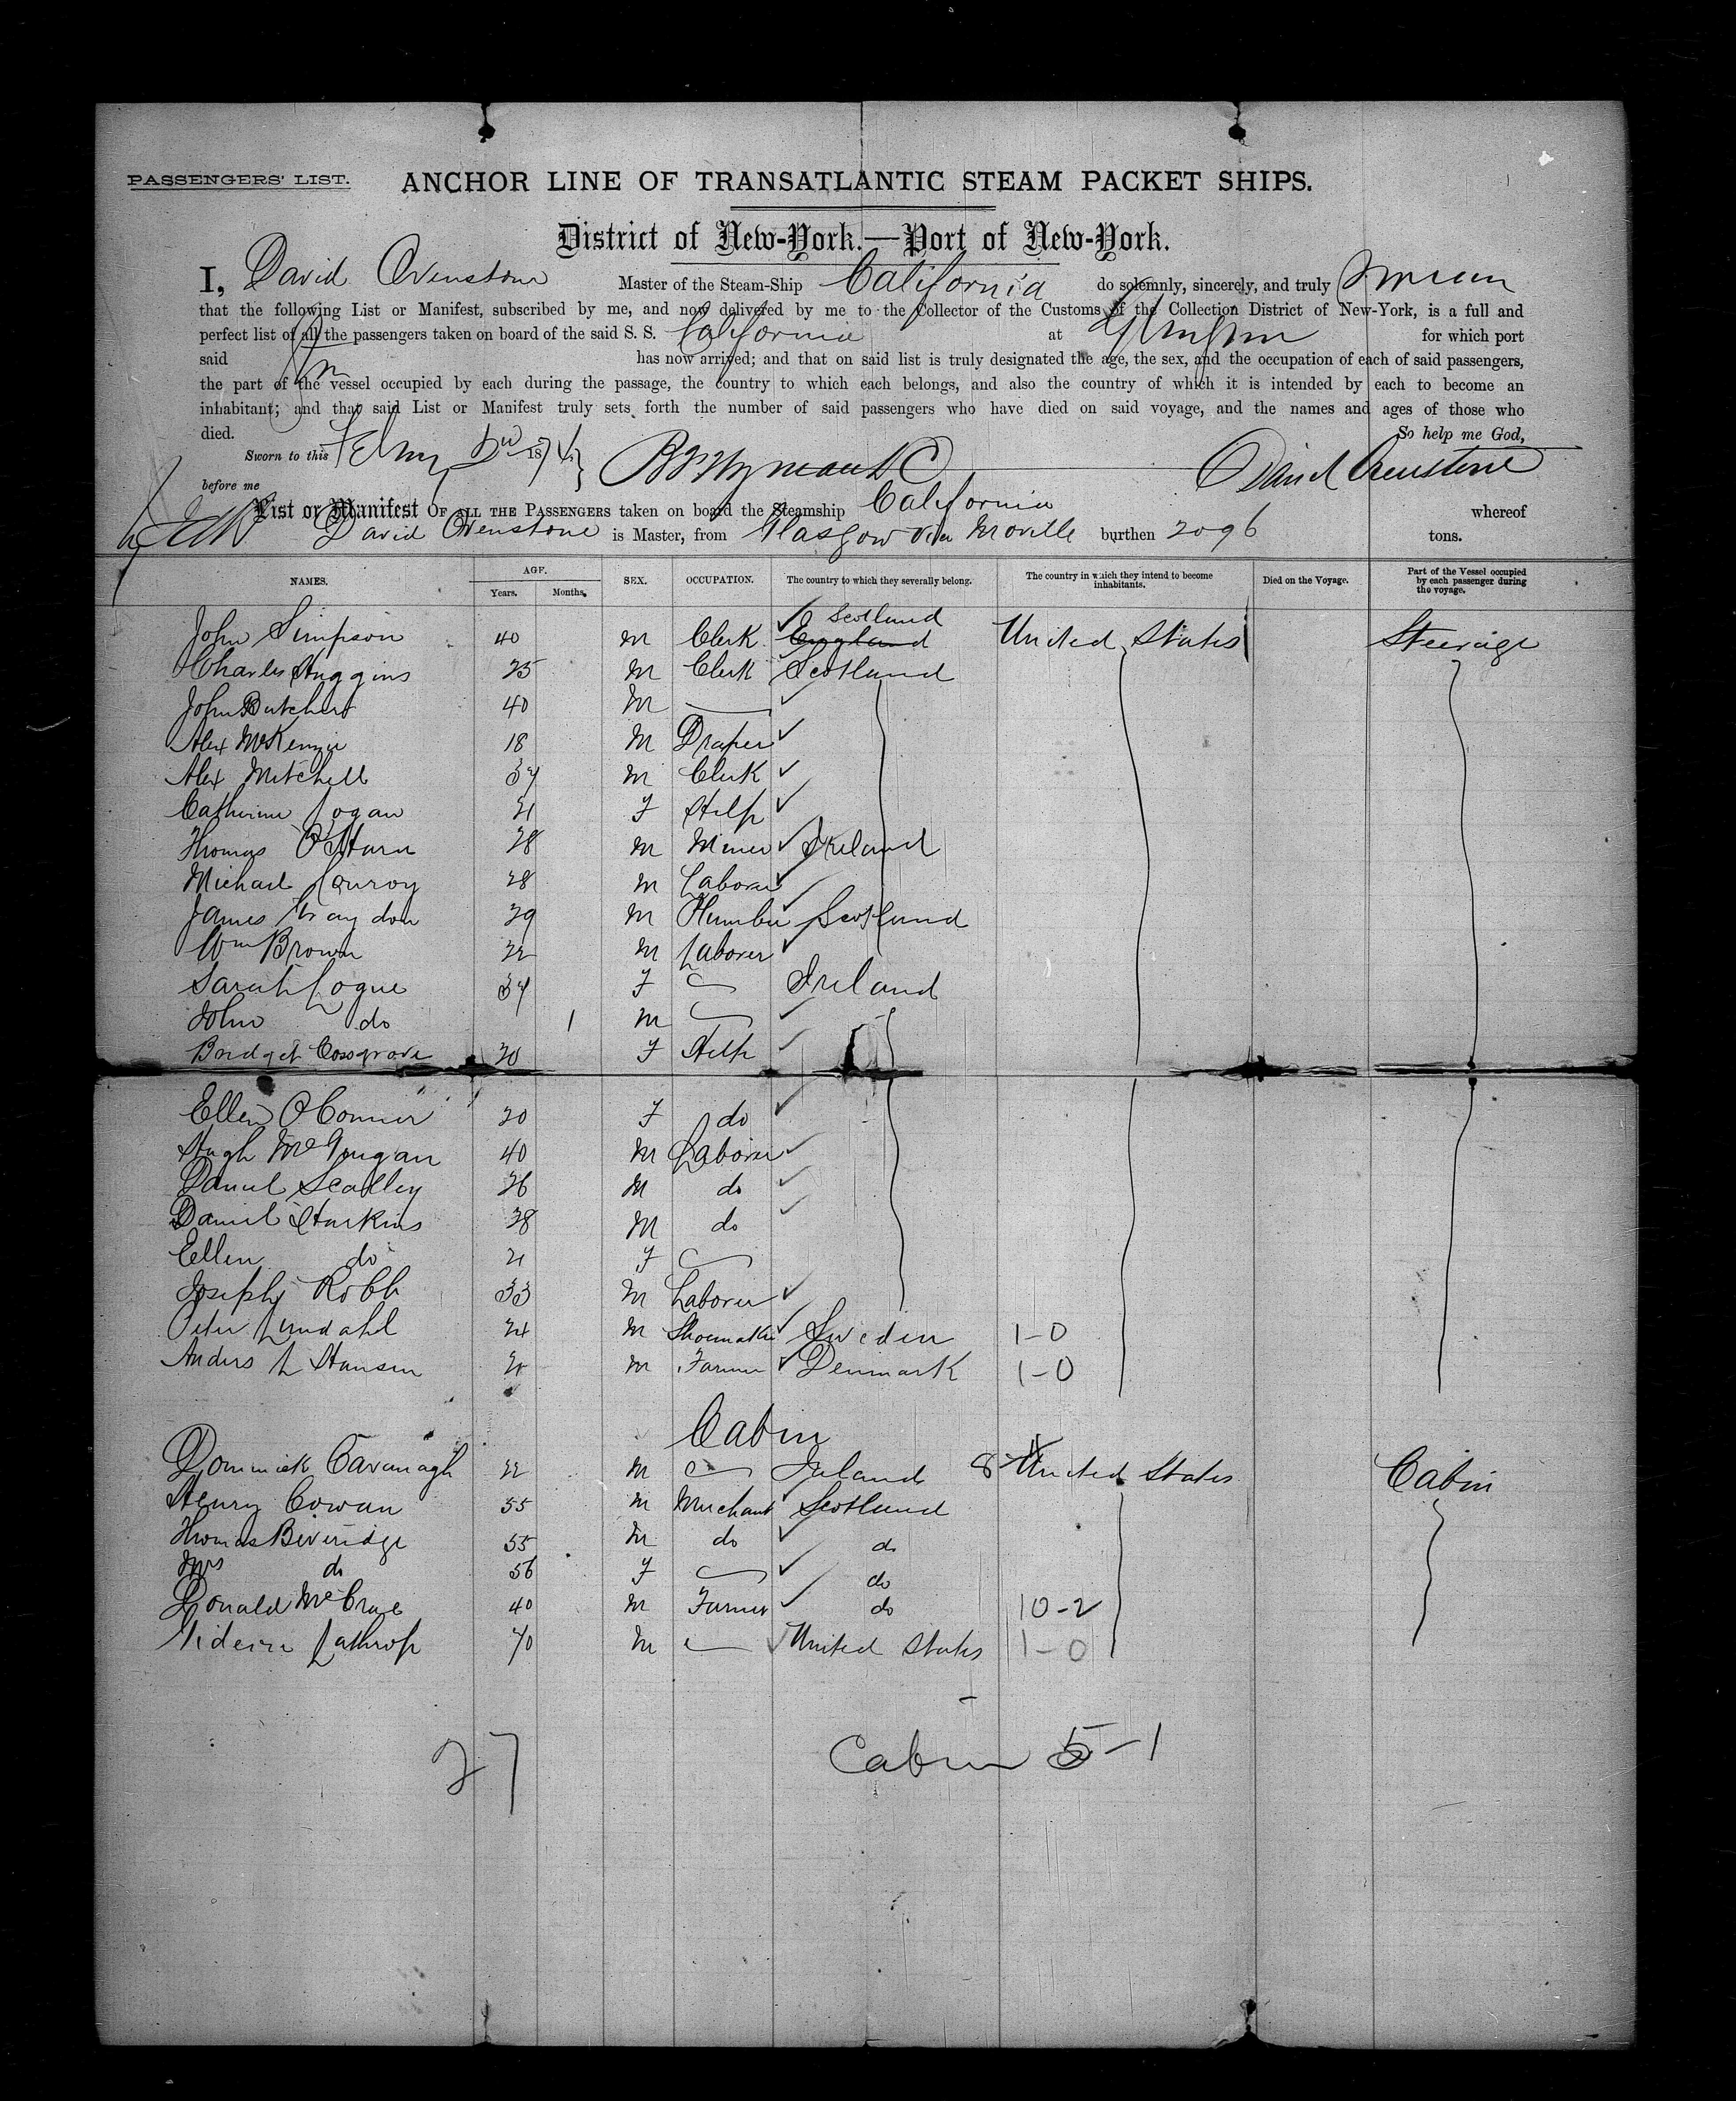 PASSENGERS' LIST. ANCHOR LINE OF TRANSATLANTIC STEAM PACKET SHIPS.
District of New-York.—Port of New-York.
I, David Ovenstone Master of the Steam-Ship California do solemnly, sincerely, and truly swear
that the following List or Manifest, subscribed by me, and now delivered by me to the Collector of the Customs of the Collection District of New-York, is a full and
perfect list of all the passengers taken on board of the said S. S. California at Glasgow for which port
said has now arrived; and that on said list is truly designated the age, the sex, and the occupation of each of said passengers,
the part of the vessel occupied by each during the passage, the country to which each belongs, and also the country of which it is intended by each to become an
inhabitant; and that said List or Manifest truly sets forth the number of said passengers who have died on said voyage, and the names and ages of those who
died. So help me God,
Sworn to this 1874 David Ovenstone
before me
List or Manifest OF ALL THE PASSENGERS taken on board the Steamship California whereof
David Ovenstone is Master, from Glasgow via Moville burthen 2096 tons.
NAMES. AGE. Years. Months. SEX. OCCUPATION. The country to which they severally belong. The country in which they intend to become inhabitants. Died on the Voyage. Part of the Vessel occupied by each passenger during the voyage.
John Simpson 40 M Clerk England Scotland United States Steerage
Charles Huggins 25 M Clerk Scotland
John Butchart 40 M
Alex McKenzie 18 M Draper
Alex Mitchell 34 M Clerk
Catherine Logan 21 F Help
Thomas O'Harn 28 M Miner Ireland
Michael Conroy 28 M Laborer
James Graydon 29 M Plumber Scotland
Wm Brown 22 M Laborer
Sarah Logue 34 F Ireland
John do 1 M
Bridget Cosgrove 20 F Help
Ellen O'Connor 20 F do
Hugh McGuigan 40 M Laborer
Daniel Scalley 26 M do
Daniel Harkins 28 M do
Ellen do 21 F
Joseph Robb 33 M Laborer
Peter Lundahl 24 M Shoemaker Sweden 1-0
Anders L Hansen M Farmer Denmark 1-0
Cabin
Dominick Cavanagh 22 M Ireland 8 United States Cabin
Henry Cowan 55 M Merchant Scotland
Thomas Beveridge 55 M do do
Mrs do 56 F do
Donald McCrae 40 M Farmer do 10-2
Lathrop 40 M United States 1-0
27 Cabin 5-1